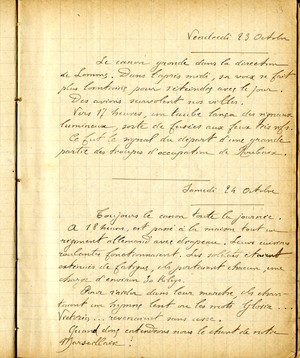 Vendredi 23 Octobre
Le canon gronde dans la direction
de Dans l'après midi, sa voix se fait
plus lointaine pour s'éteindre avec le jour.
Des avions survolent nos villes.
Vers 17 heures, un taube lança des signaux
lumineux, sorte de fusées aux feux très vifs.
Ce fut le signal du départ d'une grande
partie des troupes d'occupation de Roubaix.
Samedi 24 Octobre
Toujours le canon toute la journée.
A 18 heures, est passé à la maison tout un
régiment allemand avec drapeau. Leurs cuisines
roulantes fonctionnaient. Les soldats étaient
exténués de fatigue, ils portaient chacun une
charge d'environ 30 kilogs.
Pour raider dans leur marche, ils chan-
taient un hymne lent où les mots Gloria ...
Victoria ... revenaient sans cesse.
Quand donc entendrons nous le chant de notre
Marseillaise !